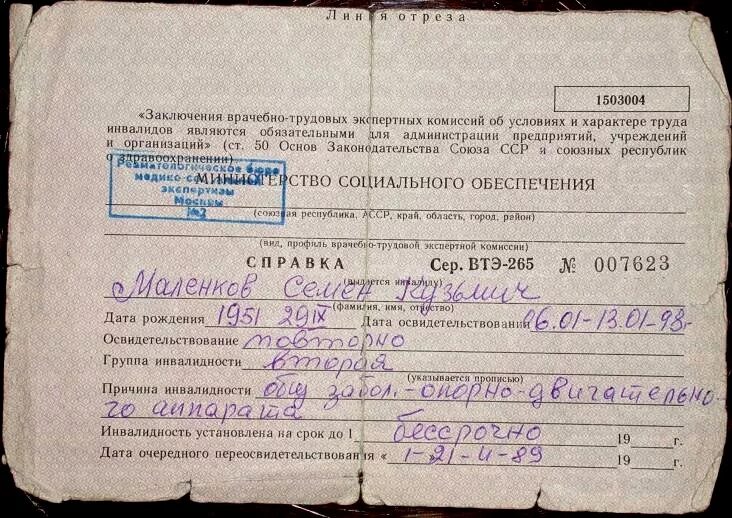 Линия отреза
1503004
«Заключения врачебно-трудовых экспертных комиссий об условиях и характере труда
инвалидов являются обязательными для администрации предприятий, учреждений
и организаций» (ст. 50 Основ Законодательства Союза ССР и союзных республик
о здравоохранении)
Ревматологическое бюро
медико-социальной
экспертизы
Москвы
№2
МИНИСТЕРСТВО СОЦИАЛЬНОГО ОБЕСПЕЧЕНИЯ
(союзная республика, АССР, край, область, город, район)
(вид, профиль врачебно-трудовой экспертной комиссии)
СПРАВКА Сер. ВТЭ-265 № 007623
(выдается инвалиду)
Маленков Семён Кузьмич
(фамилия, имя, отчество)
Дата рождения 1951 29 IX Дата освидетельствования 06.01-13.01-98г
Освидетельствование повторно
Группа инвалидности вторая
(указывается прописью)
Причина инвалидности общ забол.-опорно-двигательно-
го аппарата
Инвалидность установлена на срок до 1 бессрочно 19 г.
Дата очередного переосвидетельствования « 1-21-II-89 19 г.